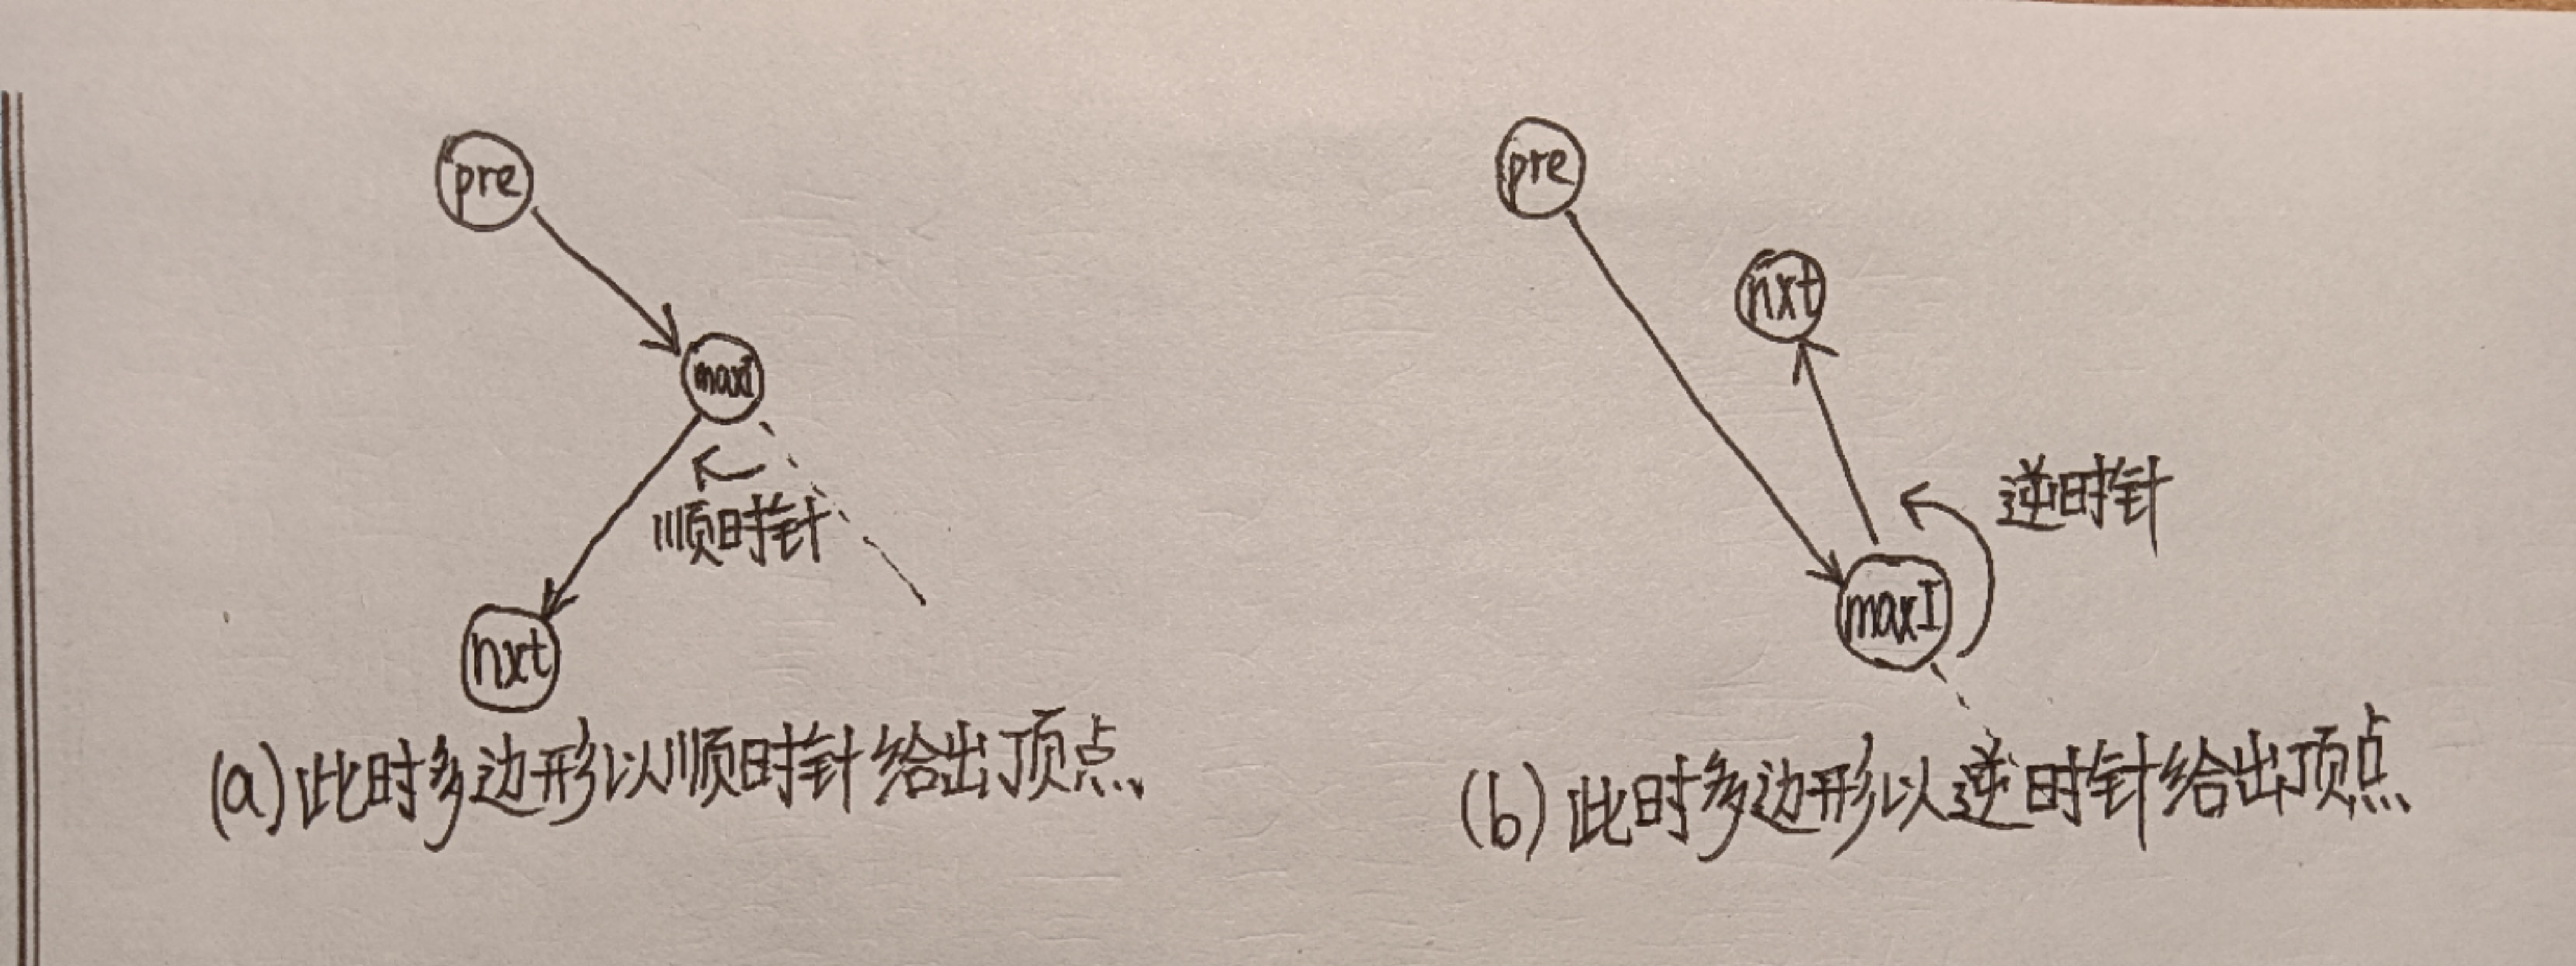 pre
maxI
顺时针
nxt
(a)此时多边形以顺时针给出顶点、
pre
nxt
逆时针
maxI
(b)此时多边形以逆时针给出顶点、